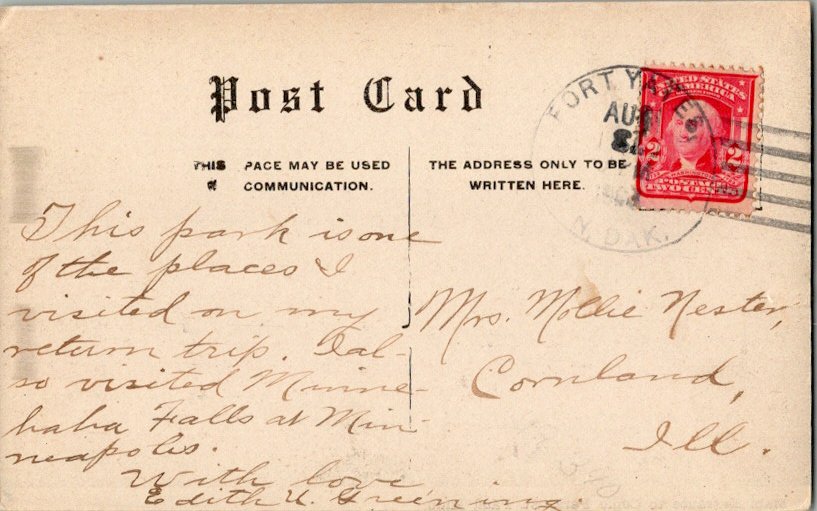 Post Card
THIS PACE MAY BE USED
COMMUNICATION.
THE ADDRESS ONLY TO BE
WRITTEN HERE.
FORT YATES
AUG
N. DAK.
UNITED STATES
OF AMERICA
2 2
POSTAGE
TWO CENTS
This park is one
of the places I
visited on my
return trip. I al-
so visited Minne-
haha Falls at Min-
neapolis.
With love
Edith U. Greening.
Mrs. Mollie Nester,
Cornland,
Ill.